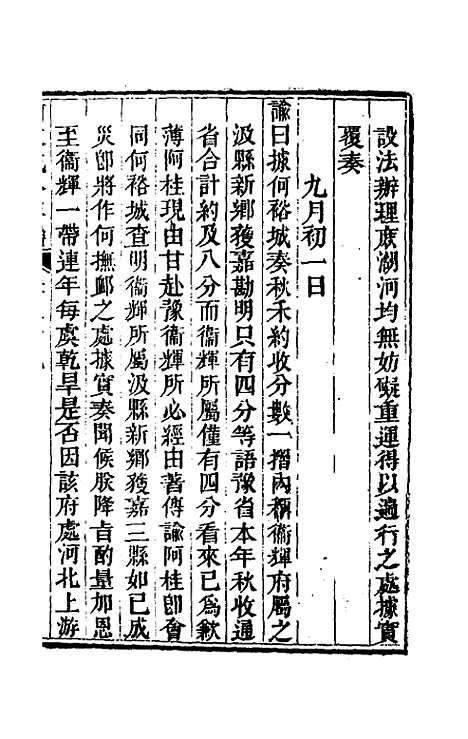 設法辦理庶湖河均無妨礙重運得以遄行之處據實
覆奏
九月初一日
諭曰據何裕城奏秋禾約收分數一摺內稱衞輝府屬之
汲縣新鄉獲嘉勘明只有四分等語豫省本年秋收通
省合計約及八分而衞輝所屬僅有四分看來已爲歉
薄阿桂現由甘赴豫衞輝所必經由著傳諭阿桂卽會
同何裕城查明衞輝所屬汲縣新鄉獲嘉三縣如已成
災卽將作何撫䘏之處據實奏聞候朕降旨酌量加恩
至衞輝一帶連年每虞乾旱是否因該府處河北上游